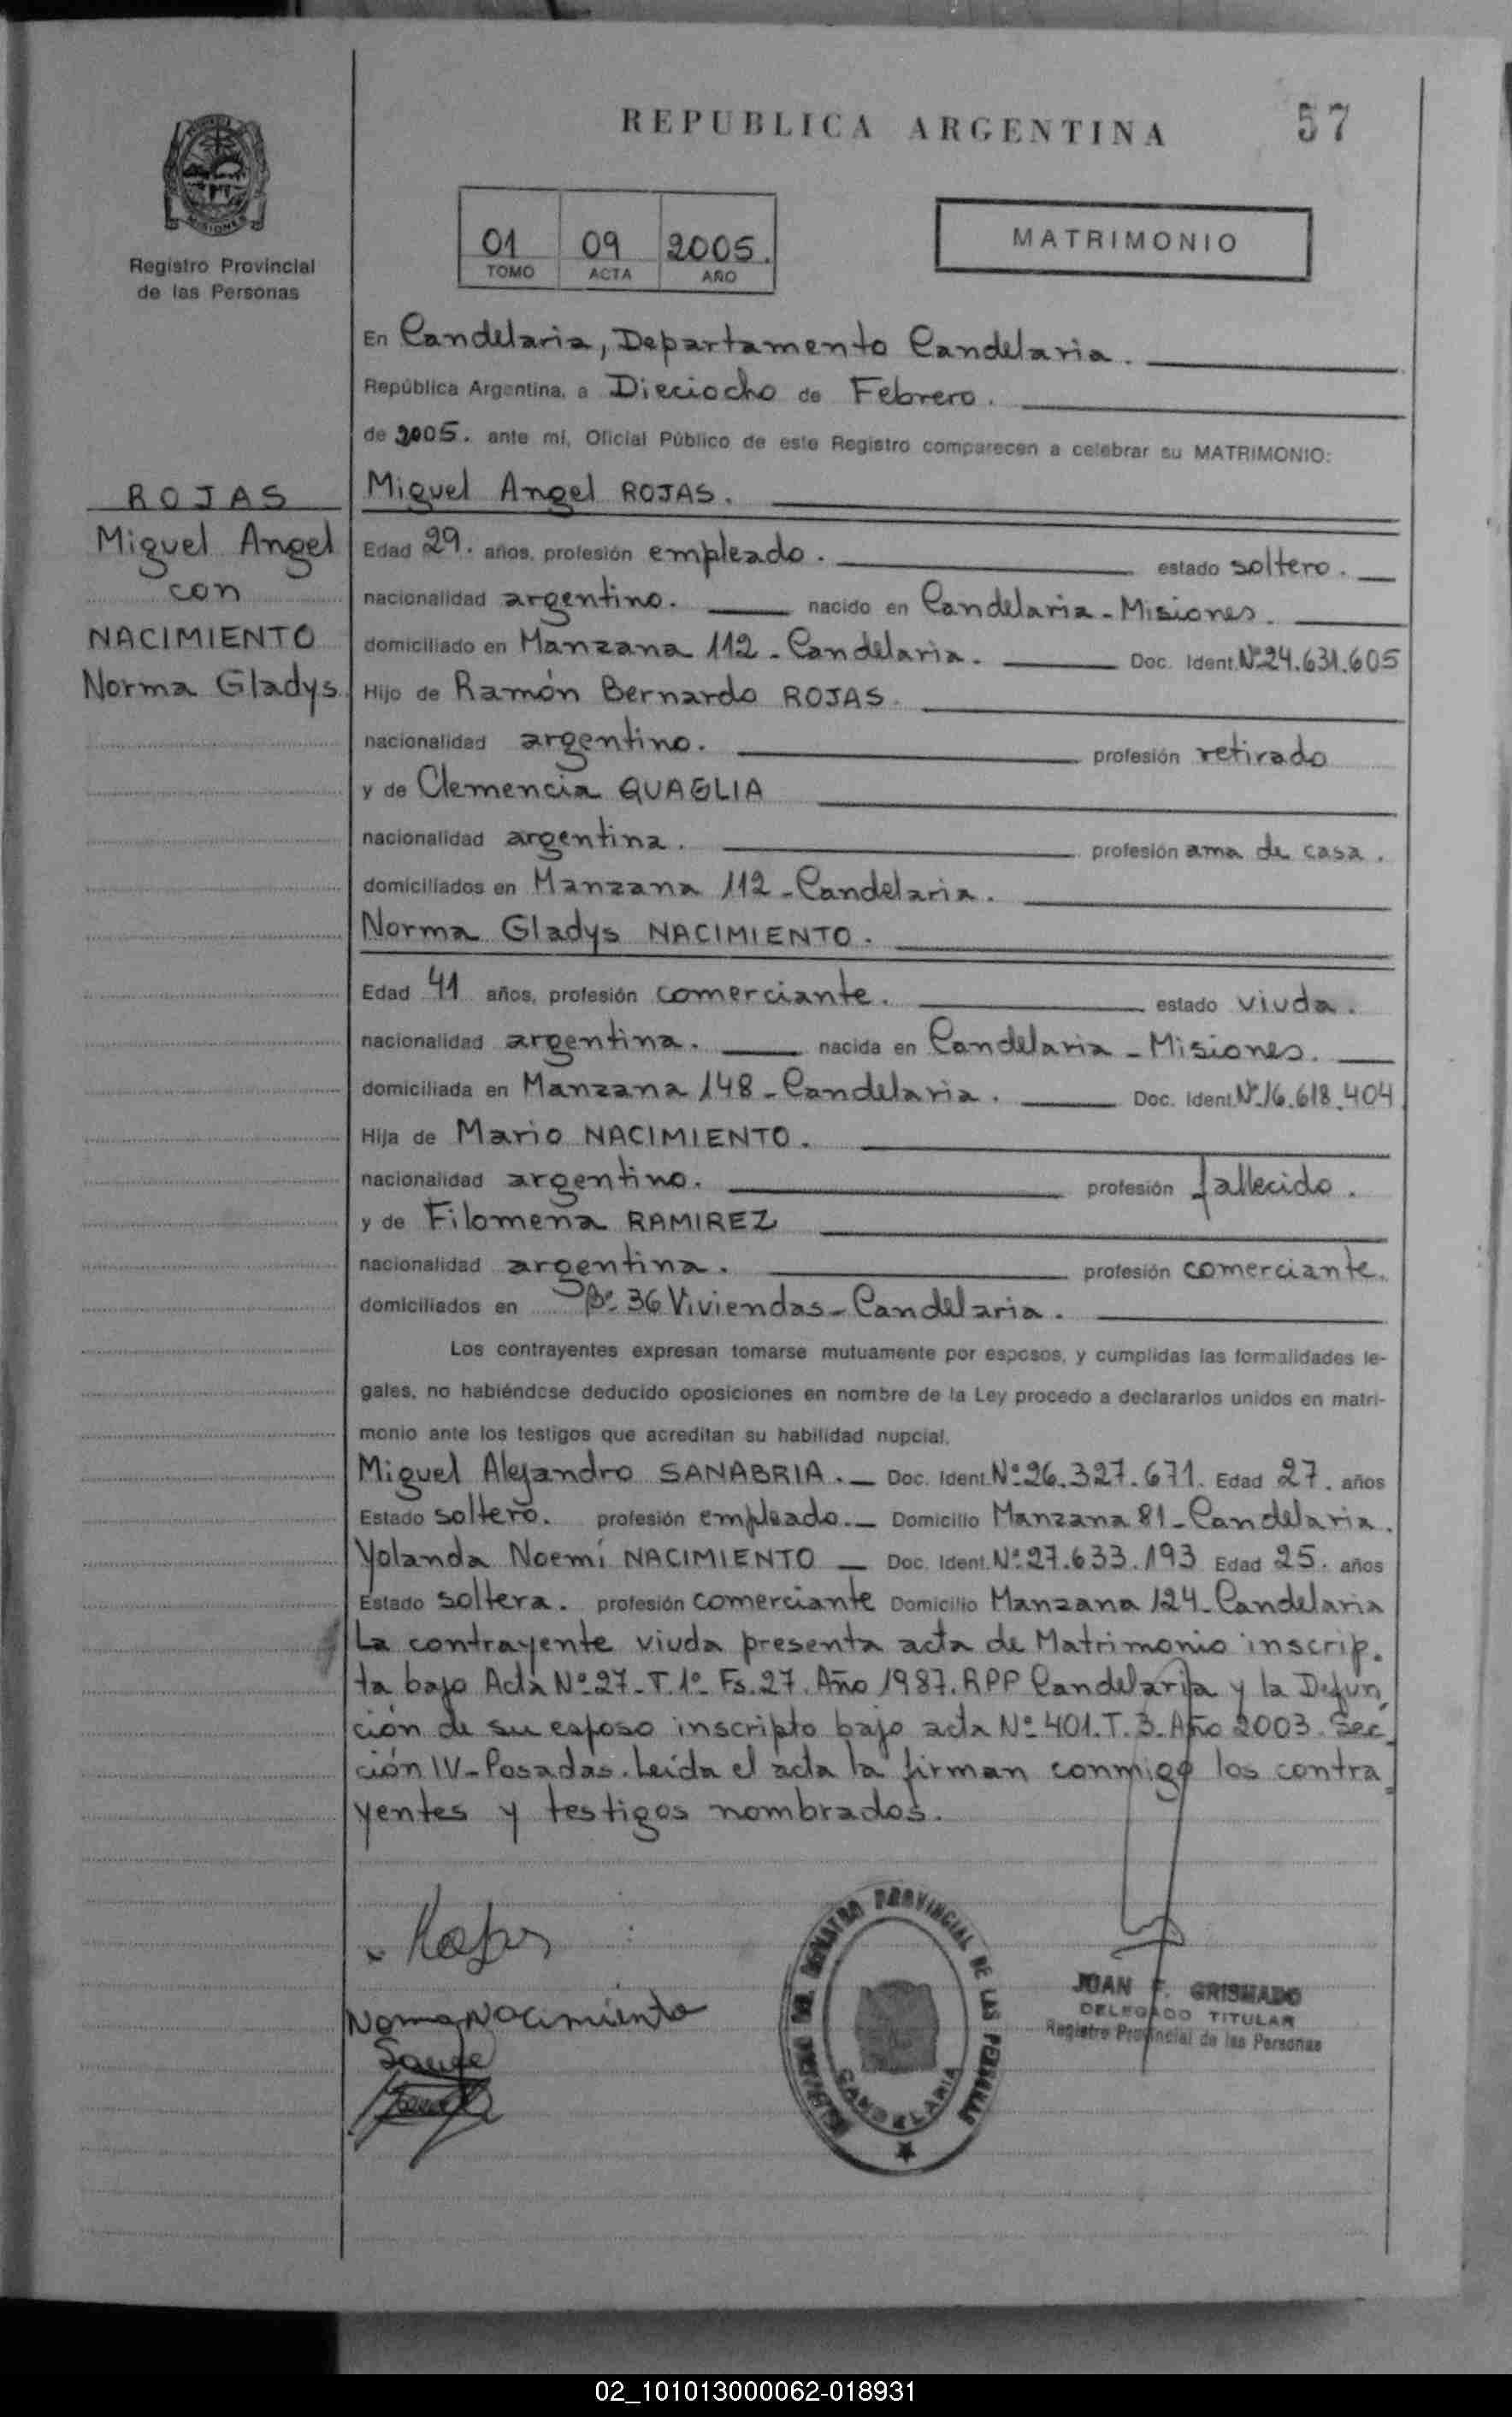 REPUBLICA ARGENTINA
57
MISIONES
Registro Provincial
de las Personas
01 09 2005.
TOMO ACTA AÑO
MATRIMONIO
En Candelaria, Departamento Candelaria.
República Argentina, a Dieciocho de Febrero.
de 2005. ante mí, Oficial Público de este Registro comparecen a celebrar su MATRIMONIO:
ROJAS
Miguel Angel
con
NACIMIENTO
Norma Gladys
Miguel Angel ROJAS.
Edad 29. años, profesión empleado. estado soltero.
nacionalidad argentino. nacido en Candelaria - Misiones.
domiciliado en Manzana 112 - Candelaria. Doc. Ident. Nº 24.631.605
Hijo de Ramón Bernardo ROJAS.
nacionalidad argentino. profesión retirado
y de Clemencia QUAGLIA
nacionalidad argentina. profesión ama de casa.
domiciliados en Manzana 112 - Candelaria.
Norma Gladys NACIMIENTO.
Edad 41 años, profesión comerciante. estado viuda.
nacionalidad argentina. nacida en Candelaria - Misiones.
domiciliada en Manzana 148 - Candelaria. Doc. Ident. Nº 16.618.404
Hija de Mario NACIMIENTO.
nacionalidad argentino. profesión fallecido.
y de Filomena RAMIREZ
nacionalidad argentina. profesión comerciante.
domiciliados en Bº 36 Viviendas - Candelaria.
Los contrayentes expresan tomarse mutuamente por esposos, y cumplidas las formalidades le-
gales, no habiéndose deducido oposiciones en nombre de la Ley procedo a declararlos unidos en matri-
monio ante los testigos que acreditan su habilidad nupcial.
Miguel Alejandro SANABRIA. Doc. Ident. Nº 26.327.671. Edad 27. años
Estado soltero. profesión empleado. Domicilio Manzana 81 - Candelaria.
Yolanda Noemí NACIMIENTO Doc. Ident. Nº 27.633.193 Edad 25. años
Estado soltera. profesión comerciante Domicilio Manzana 124 - Candelaria
La contrayente viuda presenta acta de Matrimonio inscrip-
ta bajo Acta Nº 27 - T. 1º - Fs. 27. Año 1987. RPP Candelaria y la Defun-
ción de su esposo inscripto bajo acta Nº 401. T. 3. Año 2003. Sec-
ción IV - Posadas. Leída el acta la firman conmigo los contra-
yentes y testigos nombrados.
Rojas
Norma Nacimiento
PROVINCIAL DE LAS PERSONAS
CANDELARIA
JUAN F. GRISMADO
DELEGADO TITULAR
Registro Provincial de las Personas
02_101013000062-018931